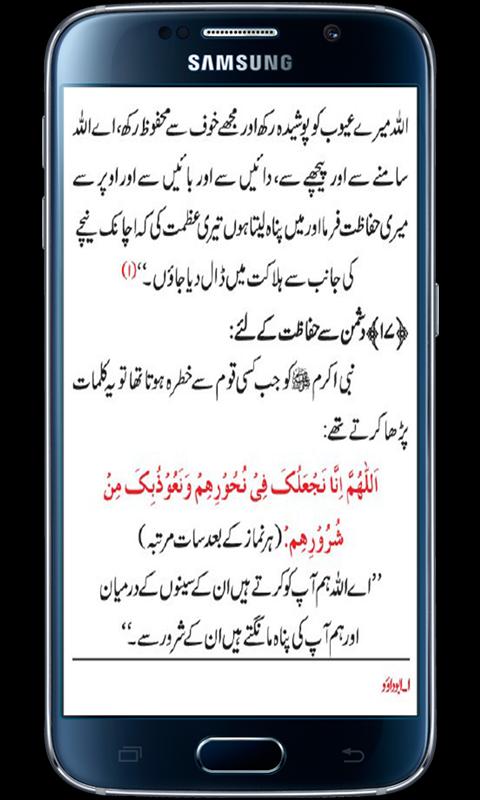 SAMSUNG
اللہ میرے عیوب کو پوشیدہ رکھ اور مجھے خوف سے محفوظ رکھ، اے اللہ
سامنے سے اور پیچھے سے، دائیں سے اور بائیں سے اور اوپر سے
میری حفاظت فرما اور میں پناہ لیتا ہوں تیری عظمت کی کہ اچانک نیچے
کی جانب سے ہلاکت میں ڈال دیا جاؤں۔‘‘(۱)
﴿۱۷﴾ دشمن سے حفاظت کے لئے:
نبی اکرم ﷺ کو جب کسی قوم سے خطرہ ہوتا تھا تو یہ کلمات
پڑھا کرتے تھے:
اَللّٰهُمَّ اِنَّا نَجْعَلُکَ فِیْ نُحُوْرِهِمْ وَنَعُوْذُبِکَ مِنْ
شُرُوْرِهِمْ. (ہر نماز کے بعد سات مرتبہ)
’’اے اللہ ہم آپ کو کرتے ہیں ان کے سینوں کے درمیان
اور ہم آپ کی پناہ مانگتے ہیں ان کے شرور سے۔‘‘
۱۔ابوداؤد